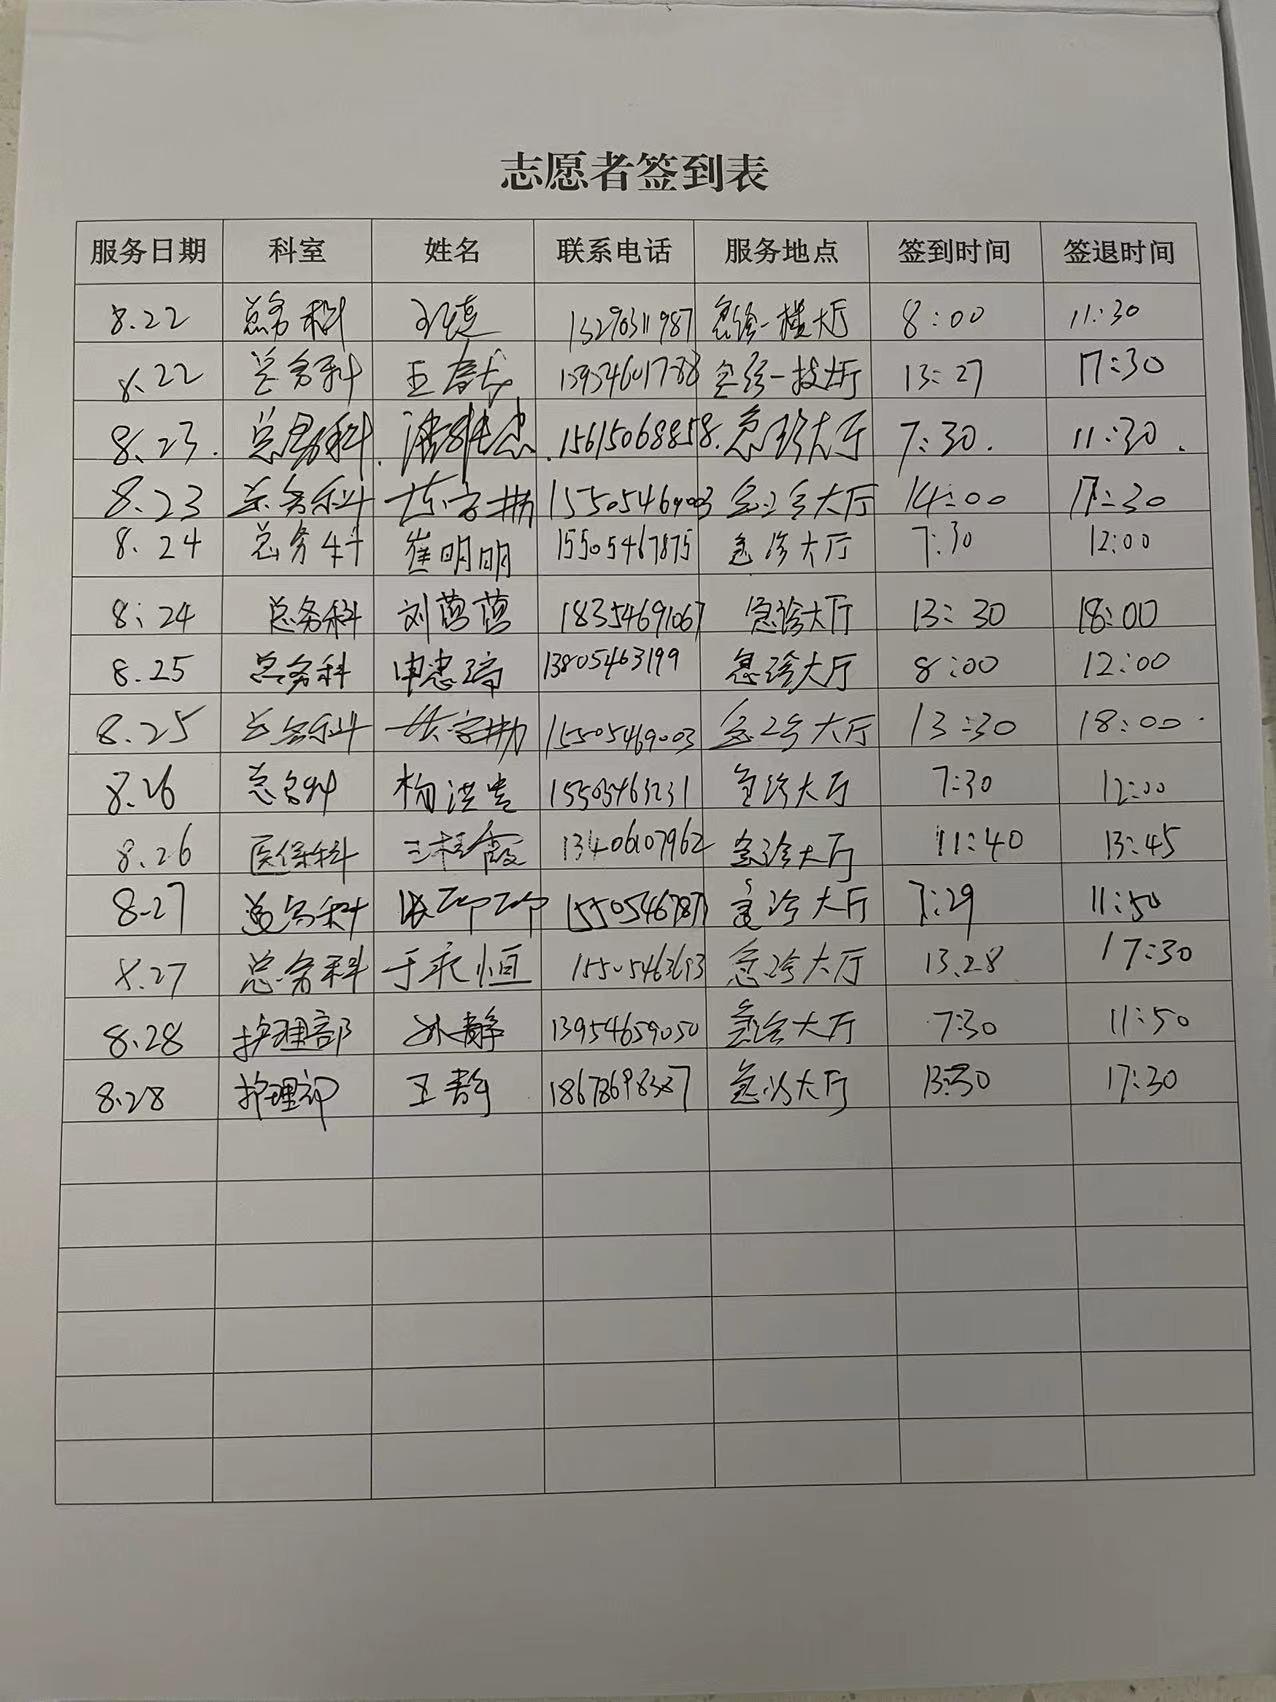 志愿者签到表
服务日期 科室 姓名 联系电话 服务地点 签到时间 签退时间
8.22 总务科 13290311987 急诊一楼大厅 8:00 11:30
8.22 总务科 王春长 13954601788 急诊一楼大厅 13:27 17:30
8.23. 总务科. 潘维忠. 15615068858. 急诊大厅 7:30. 11:30.
8.23 总务科 15505469003 急诊大厅 14:00 17:30
8.24 总务科 崔明明 15505467875 急诊大厅 7:30 12:00
8:24 总务科 刘蕾蕾 18354691067 急诊大厅 13:30 18:00
8.25 总务科 申忠 13805463199 急诊大厅 8:00 12:00
8.25 总务科 15505469003 急诊大厅 13:30 18:00
8.26 总务科 杨洪贵 15505463231 急诊大厅 7:30 12:00
8.26 医保科 王桂霞 13406107962 急诊大厅 11:40 13:45
8.27 总务科 急诊大厅 7:29 11:50
8.27 总务科 于永恒 15505463653 急诊大厅 13.28 17:30
8.28 护理部 孙静 13954659050 急诊大厅 7:30 11:50
8.28 护理部 王静 急诊大厅 13:30 17:30